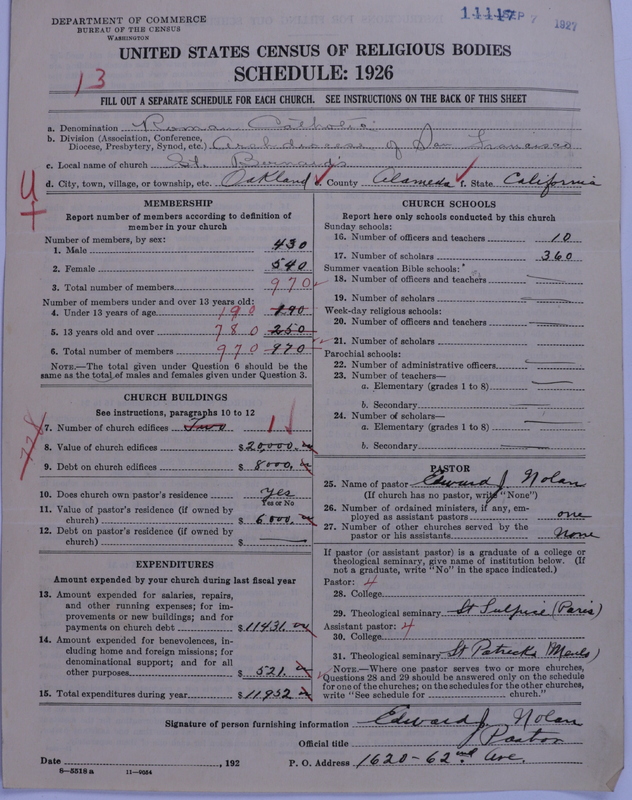 DEPARTMENT OF COMMERCE
BUREAU OF THE CENSUS
WASHINGTON
11117 SEP 7 1927
UNITED STATES CENSUS OF RELIGIOUS BODIES
SCHEDULE: 1926
13
FILL OUT A SEPARATE SCHEDULE FOR EACH CHURCH. SEE INSTRUCTIONS ON THE BACK OF THIS SHEET
a. Denomination Roman Catholic
b. Division (Association, Conference, Diocese, Presbytery, Synod, etc.) Archdiocese of San Francisco
c. Local name of church St. Bernard's
d. City, town, village, or township, etc. Oakland e. County Alameda f. State California
MEMBERSHIP
Report number of members according to definition of member in your church
Number of members, by sex:
1. Male 430
2. Female 540
3. Total number of members 970
Number of members under and over 13 years old:
4. Under 13 years of age 190 190
5. 13 years old and over 780 250
6. Total number of members 970 970
NOTE.—The total given under Question 6 should be the same as the total of males and females given under Question 3.
CHURCH BUILDINGS
See instructions, paragraphs 10 to 12
7. Number of church edifices Two 1
8. Value of church edifices $20,000.
9. Debt on church edifices $8000.
10. Does church own pastor's residence yes
Yes or No
11. Value of pastor's residence (if owned by church) $6,000.
12. Debt on pastor's residence (if owned by church) $
EXPENDITURES
Amount expended by your church during last fiscal year
13. Amount expended for salaries, repairs, and other running expenses; for improvements or new buildings; and for payments on church debt $11431.
14. Amount expended for benevolences, including home and foreign missions; for denominational support; and for all other purposes $521.
15. Total expenditures during year $11,952
CHURCH SCHOOLS
Report here only schools conducted by this church
Sunday schools:
16. Number of officers and teachers 10
17. Number of scholars 360
Summer vacation Bible schools:
18. Number of officers and teachers
19. Number of scholars
Week-day religious schools:
20. Number of officers and teachers
21. Number of scholars
Parochial schools:
22. Number of administrative officers
23. Number of teachers—
a. Elementary (grades 1 to 8)
b. Secondary
24. Number of scholars—
a. Elementary (grades 1 to 8)
b. Secondary
PASTOR
25. Name of pastor Edward J. Nolan
(If church has no pastor, write "None")
26. Number of ordained ministers, if any, employed as assistant pastors one
27. Number of other churches served by the pastor or his assistants None
If pastor (or assistant pastor) is a graduate of a college or theological seminary, give name of institution below. (If not a graduate, write "No" in the space indicated.)
Pastor: 4
28. College
29. Theological seminary St Sulpice (Paris)
Assistant pastor: 4
30. College
31. Theological seminary St Patricks (Menlo)
NOTE.—Where one pastor serves two or more churches, Questions 28 and 29 should be answered only on the schedule for one of the churches; on the schedules for the other churches, write "See schedule for church."
Signature of person furnishing information Edward J. Nolan
Official title Pastor
Date , 192 P. O. Address 1620-62nd Ave.
8—5518 a 11—9054